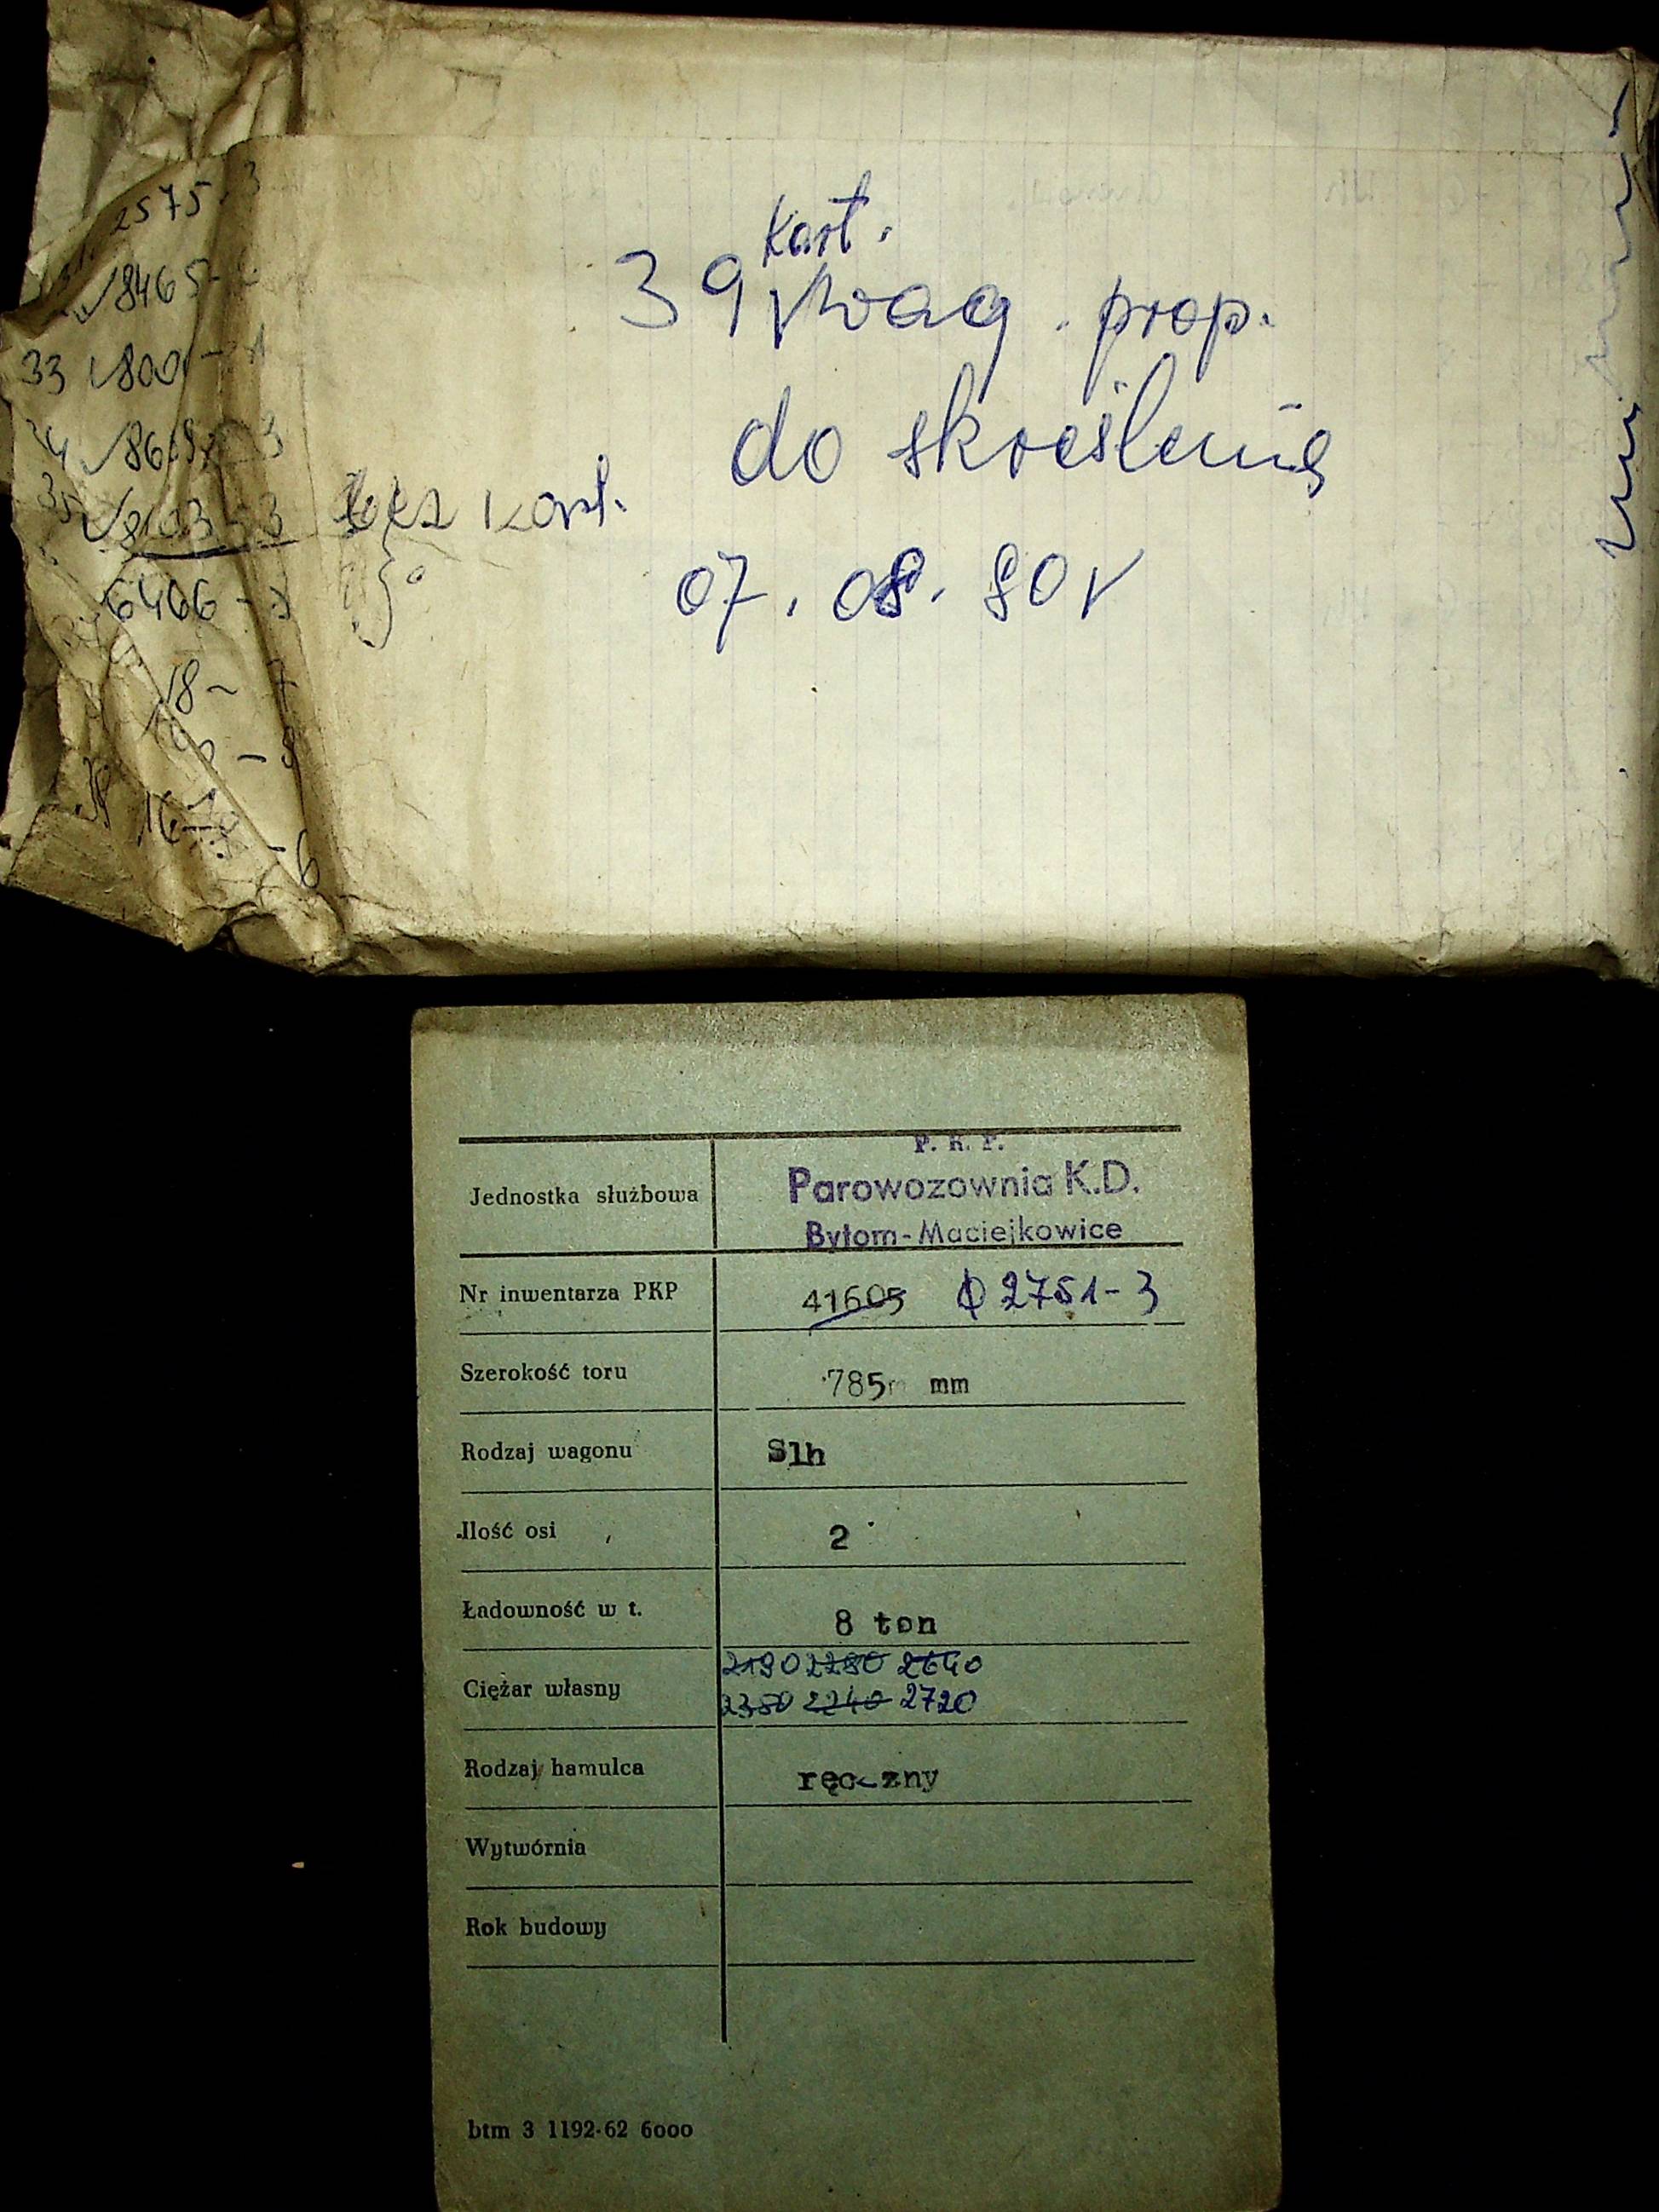 2575-3
8465-
33 800
35 8103-3
6466-
18- 7
-6
bez kart.
kart.
39 wag. prop.
do skreślenia
07.08.80r
P. K. P.
Parowozownia K.D.
Bytom-Maciejkowice
Jednostka służbowa
Nr inwentarza PKP 41605 2751-3
Szerokość toru 785 mm
Rodzaj wagonu Slh
Ilość osi 2
Ładowność w t. 8 ton
2190 2280 2640
Ciężar własny
2350 2240 2720
Rodzaj hamulca ręczny
Wytwórnia
Rok budowy
btm 3 1192-62 6000